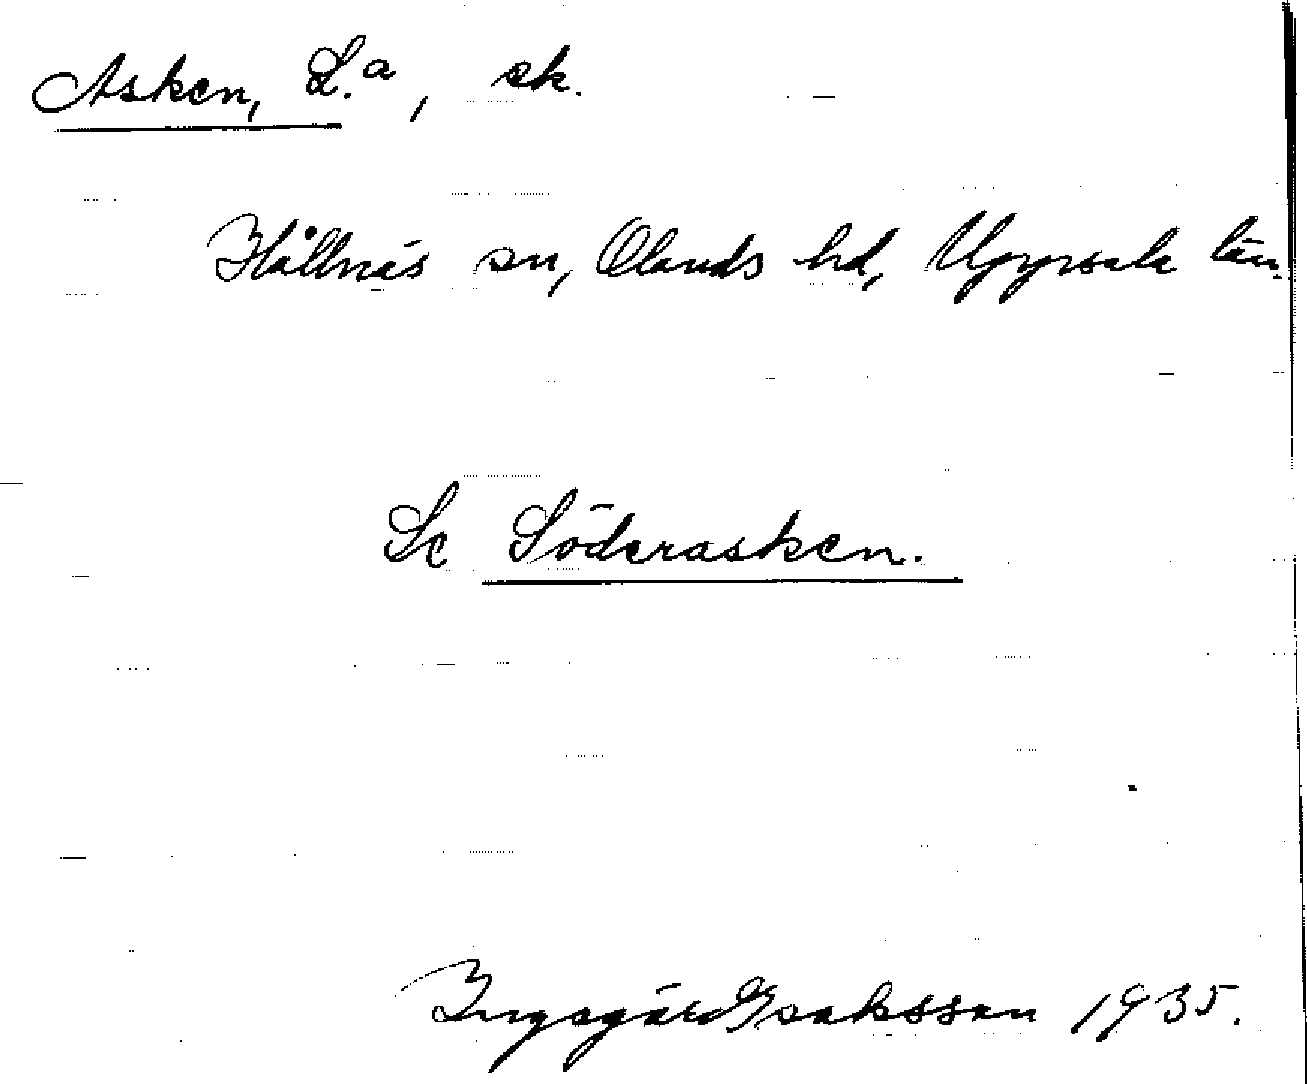 Asken, S.a, sk.
Hållnäs sn, Olands hd, Uppsala län.
Se Söderasken.
Ingegärd Isaksson 1935.